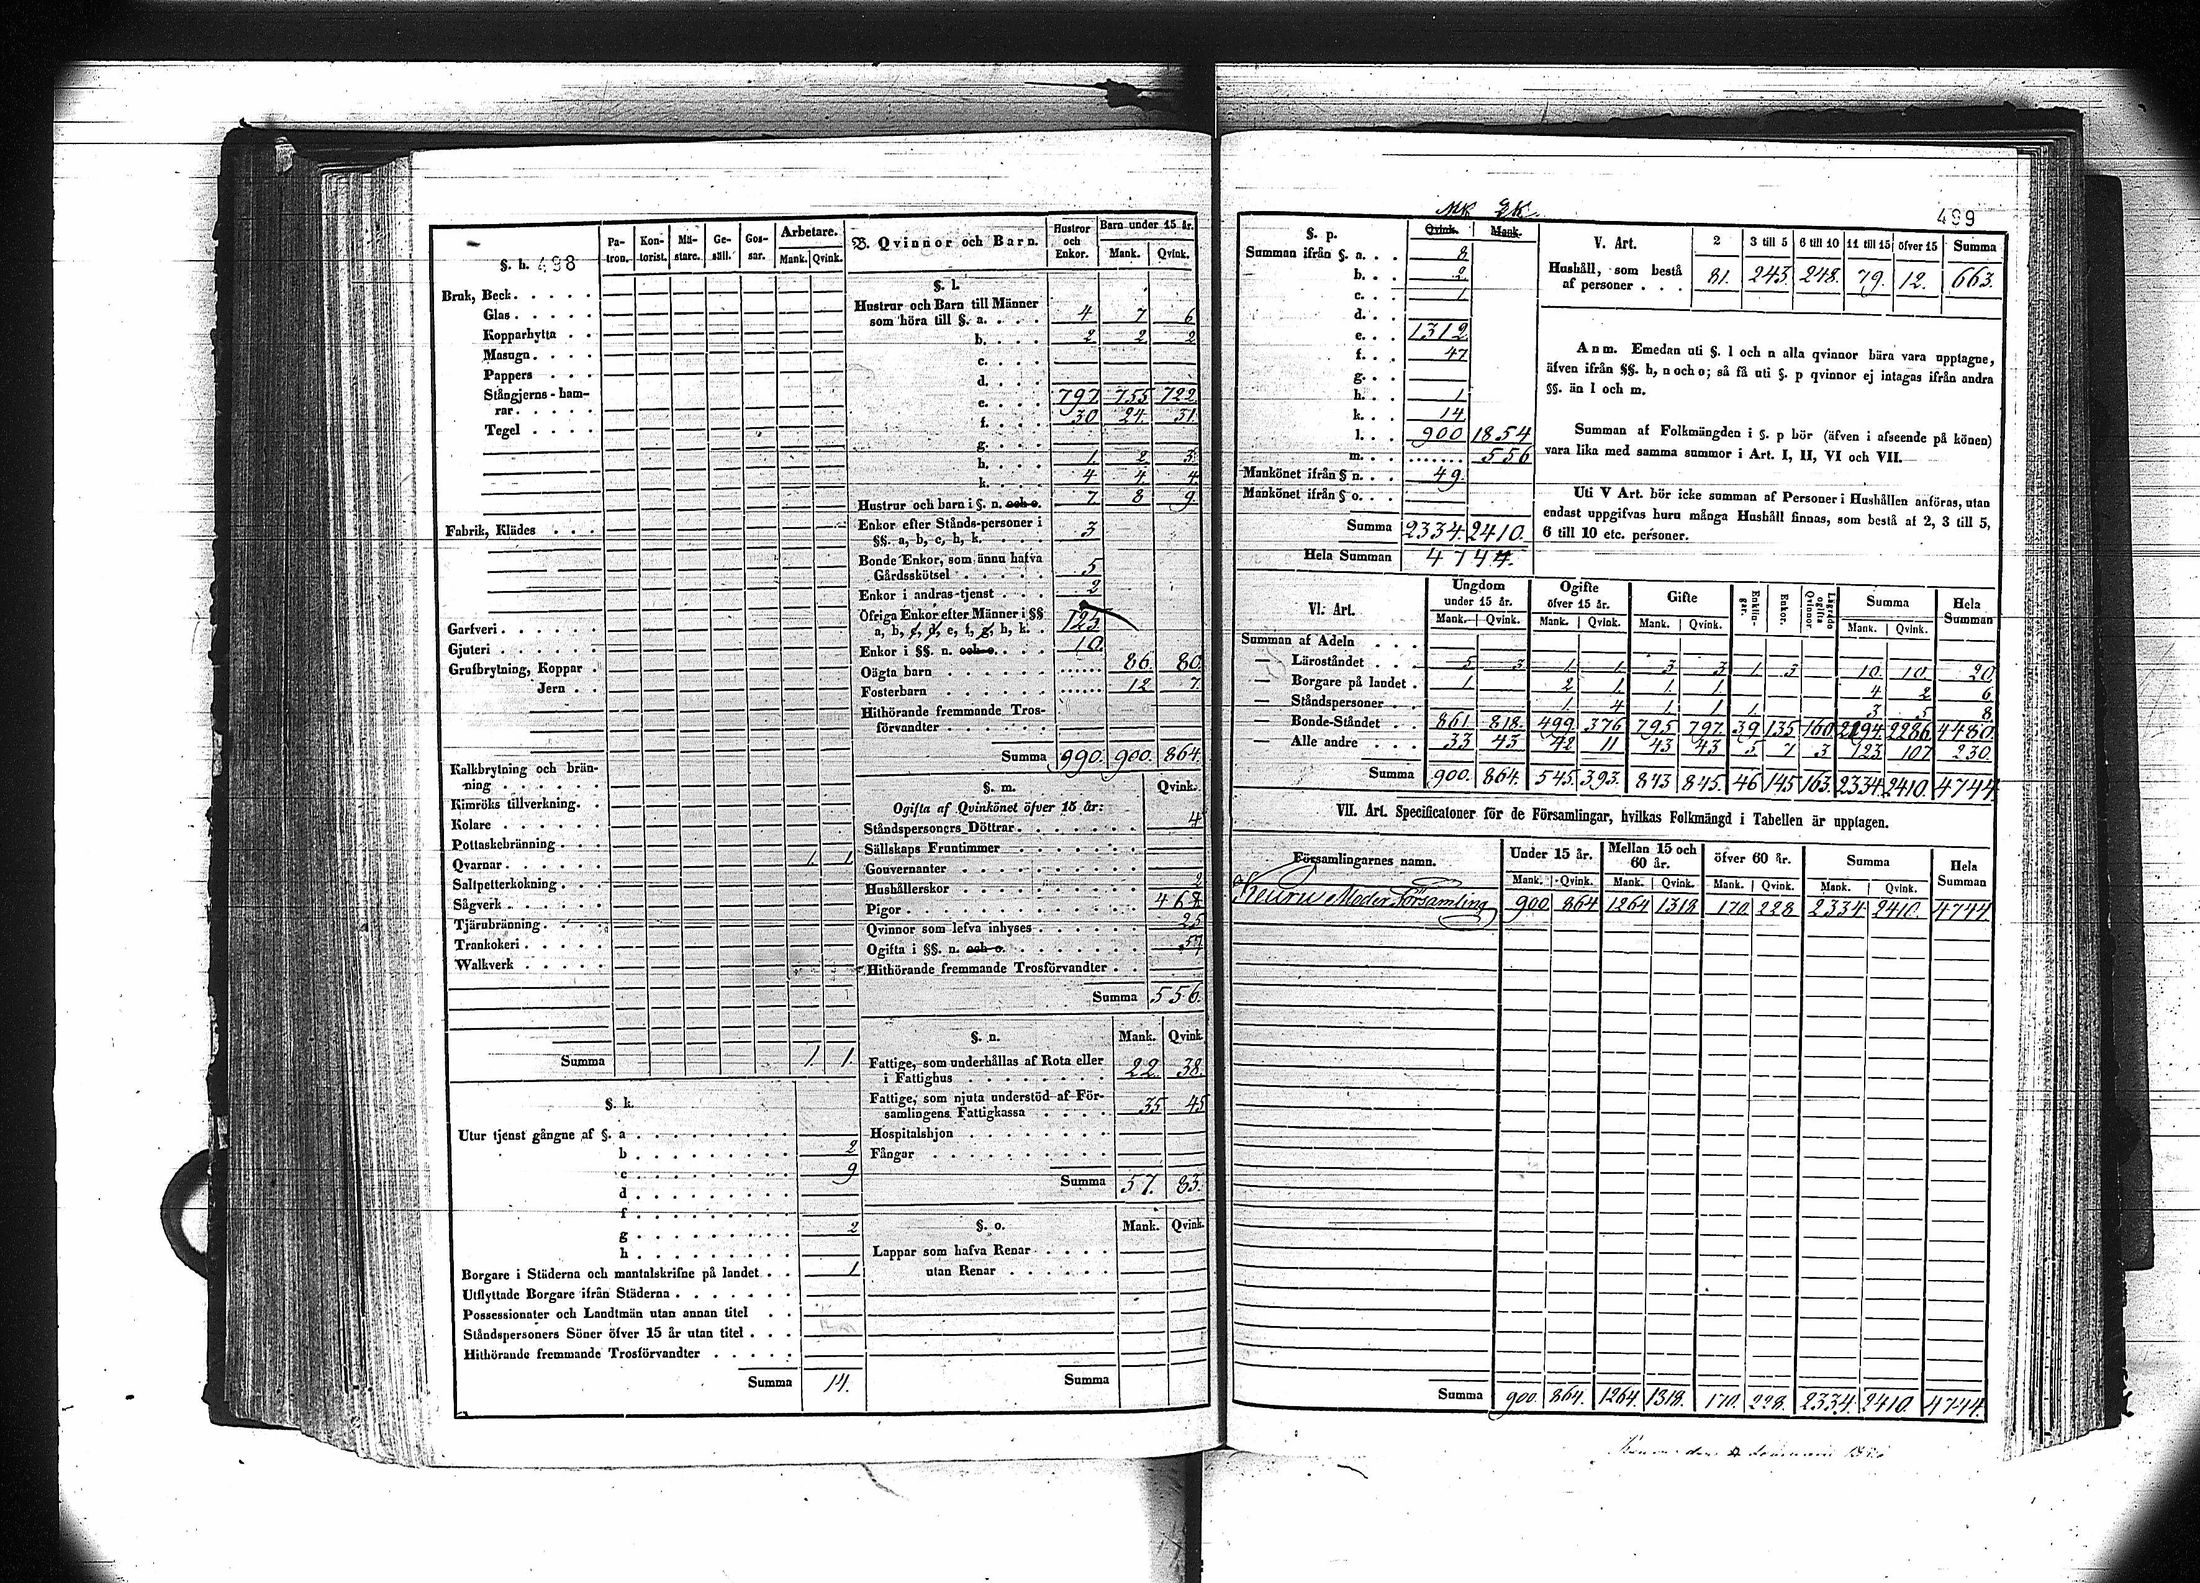 §. h. 498
Pa-tron. Kon-torist. Mä-stare. Ge-säll. Gos-sar. Arbetare. Mank. Qvink.
Bruk, Beck
Glas
Kopparhytta
Masugn
Pappers
Stångjerns-ham-
rar
Tegel
Fabrik, Klädes
Garfveri
Gjuteri
Grufbrytning, Koppar
Jern
Kalkbrytning och brän-
ning
Kimröks tillverkning
Kolare
Pottaskebränning
Qvarnar 1. 1.
Saltpetterkokning
Sågverk
Tjärubränning
Trankokeri
Walkverk
Summa 1. 1.
§. k.
Utur tjenst gångne af §. a
b 2
c 9
d
f
g 2
h
Borgare i Städerna och mantalskrifne på landet 1
Utflyttade Borgare ifrån Städerna
Possessionater och Landtmän utan annan titel
Ståndspersoners Söner öfver 15 år utan titel
Hithörande fremmande Trosförvandter
Summa 14.
B. Qvinnor och Barn. Hustror och Enkor. Barn under 15 år. Mank. Qvink.
§. l.
Hustrur och Barn till Männer
som höra till §. a. 4 7 6
b. 2 2 2
c.
d.
e. 797 755 722
f. 30 24. 31.
g.
h. 1. 2 3
k. 4 4 4
Hustrur och barn i §. n. och o. 7 8 9.
Enkor efter Stånds-personer i
§§. a, b, c, h, k. 3
Bonde Enkor, som ännu hafva
Gårdsskötsel 5
Enkor i andras tjenst 2
Öfriga Enkor efter Männer i §§
a, b, c, d, e, f, g, h, k. 125.
Enkor i §§. n. och o. 10.
Oägta barn 86. 80.
Fosterbarn 12 7.
Hithörande fremmande Tros-
förvandter
Summa 990. 900. 864.
§. m. Qvink.
Ogifta af Qvinkönet öfver 15 år:
Ståndspersoners Döttrar 4
Sällskaps Fruntimmer
Gouvernanter
Hushållerskor 2
Pigor 468
Qvinnor som lefva inhyses 25
Ogifta i §§. n. och o. 57
Hithörande fremmande Trosförvandter
Summa 556.
§. n. Mank. Qvink.
Fattige, som underhållas af Rota eller
i Fattighus 22. 38.
Fattige, som njuta understöd af För-
samlingens Fattigkassa 35 45
Hospitalshjon
Fångar
Summa 57. 83.
§. o. Mank. Qvink.
Lappar som hafva Renar
utan Renar
Summa
499
Mk Qk.
§. p. Qvink. Mank.
Summan ifrån §. a. 8
b. 2
c. 1
d.
e. 1312
f. 47
g.
h. 1
k. 14
l. 900 1854
m. 556
Mankönet ifrån § n. 49.
Mankönet ifrån § o.
Summa 2334. 2410.
Hela Summan 4744.
V. Art. 2 3 till 5 6 till 10 11 till 15 öfver 15 Summa
Hushåll, som bestå
af personer 81. 243. 248. 79. 12. 663.
Anm. Emedan uti §. l och n alla qvinnor bära vara upptagne,
äfven ifrån §§. h, n och o; så få uti §. p qvinnor ej intagas ifrån andra
§§. än l och m.
Summan af Folkmängden i §. p bör (äfven i afseende på könen)
vara lika med samma summor i Art. I, II, VI och VII.
Uti V Art. bör icke summan af Personer i Hushållen anföras, utan
endast uppgifvas huru många Hushåll finnas, som bestå af 2, 3 till 5,
6 till 10 etc. personer.
VI. Art. Ungdom under 15 år. Ogifte öfver 15 år. Gifte Enklin-gar. Enkor. Lägrade ogifta Qvinnor Summa Hela Summan
Mank. Qvink. Mank. Qvink. Mank. Qvink. Mank. Qvink.
Summan af Adeln
— Läroståndet 5 3 1 1 3 3 1 3 10. 10. 20
— Borgare på landet 1. 2 1. 1. 1. 4 2 6
— Ståndspersoner 1 4 1 1 1 3 5 8
— Bonde-Ståndet 861. 818. 499. 376 795 797. 39 135 160. 2194 2286 4480.
— Alle andre 33 43 42 11 43 43 5 7 3 123 107 230.
Summa 900. 864. 545. 393. 843 845. 46 145 163. 2334. 2410. 4744.
VII. Art. Specificatoner för de Församlingar, hvilkas Folkmängd i Tabellen är upptagen.
Församlingarnes namn. Under 15 år. Mellan 15 och 60 år. öfver 60 år. Summa Hela Summan
Mank. Qvink. Mank. Qvink. Mank. Qvink. Mank. Qvink.
Keuru Moder Församling 900 864 1264 1318 170. 228 2334. 2410. 4744.
Summa 900. 864. 1264. 1318. 170. 228. 2334. 2410. 4744.